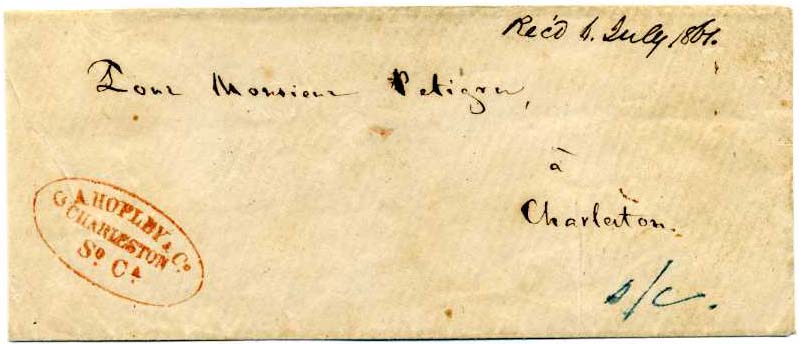 Rec'd 6. July 1861.
Pour Monsieur Petigru,
à
Charleston.
G A HOPLEY & Co
CHARLESTON
So. Ca.
s/c.